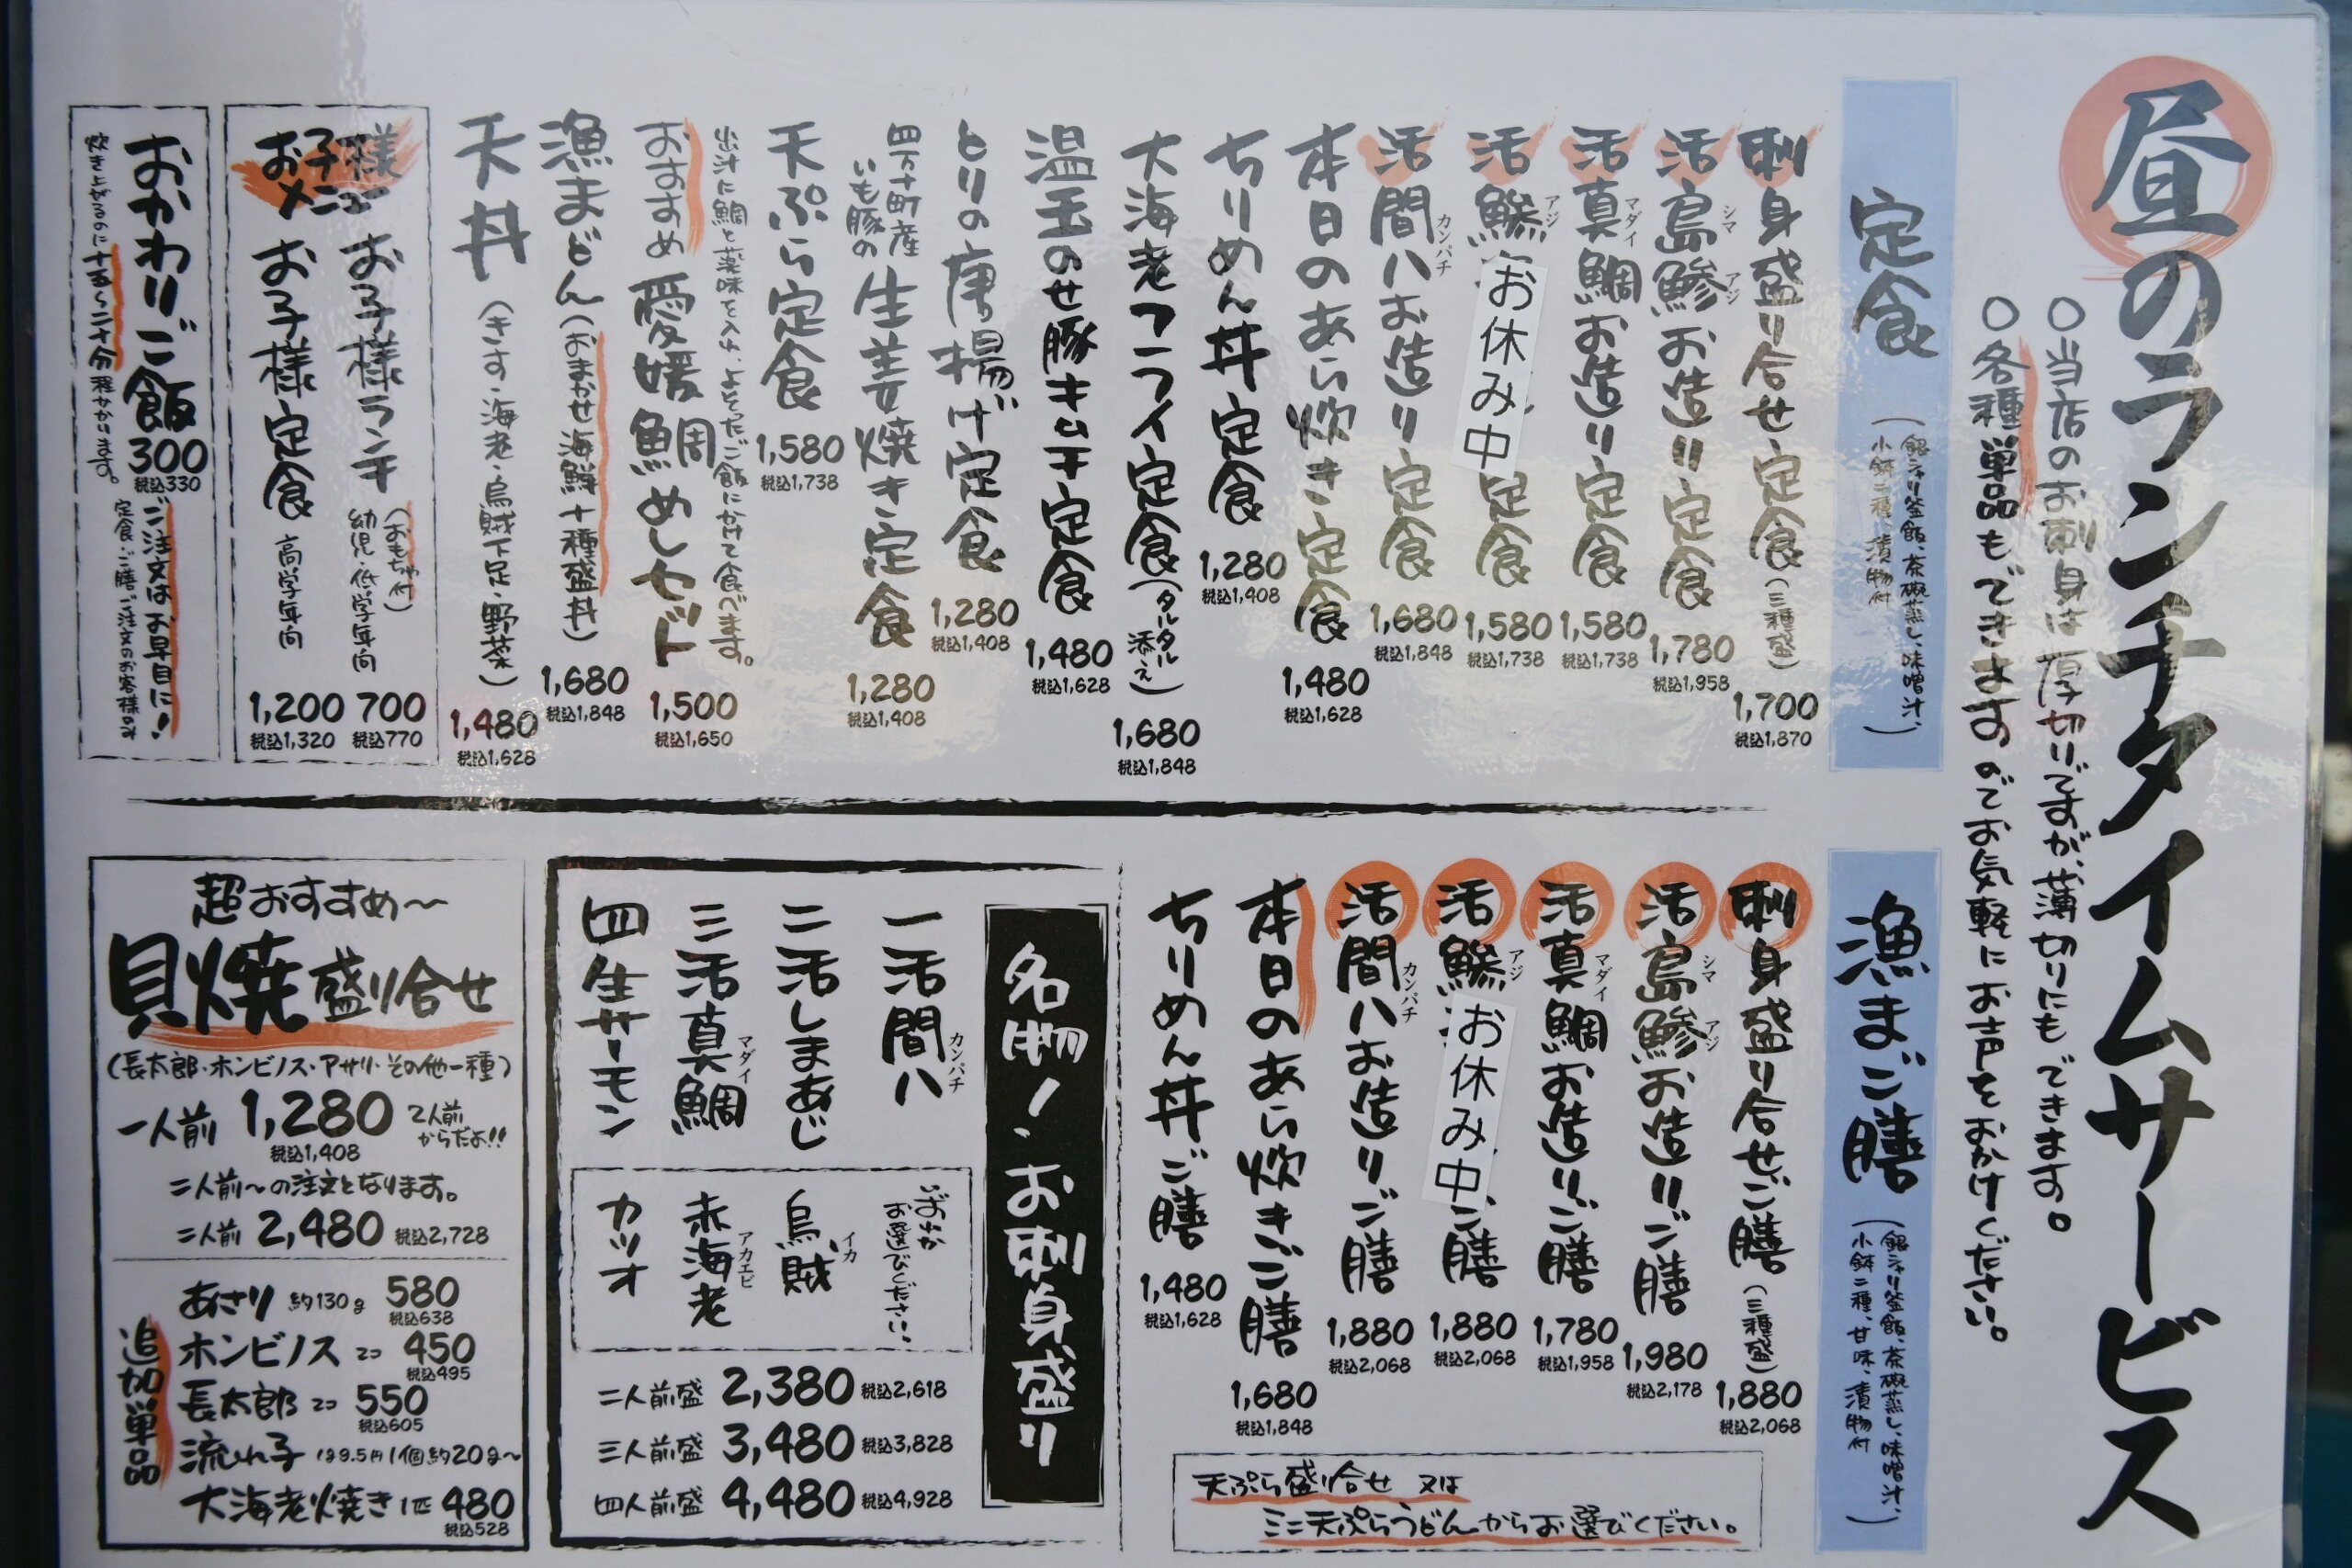 昼のランチタイムサービス
○当店のお刺身は厚切りですが、薄切りにもできます。
○各種単品もできますのでお気軽にお声をおかけください。
定食
(銀シャリ釜飯、茶碗蒸し、味噌汁、
小鉢二種、漬物付)
刺身盛り合せ定食(三種盛) 1,700 税込1,870
活島鯵お造り定食 シマアジ 1,780 税込1,958
活真鯛お造り定食 マダイ 1,580 税込1,738
活鯵 アジ お休み中 定食 1,580 税込1,738
活間八お造り定食 カンパチ 1,680 税込1,848
本日のあら炊き定食 1,480 税込1,628
ちりめん丼定食 1,280 税込1,408
大海老フライ定食(タルタル添え) 1,680 税込1,848
温玉のせ豚キムチ定食 1,480 税込1,628
とりの唐揚げ定食 1,280 税込1,408
四万十町産
いも豚の生姜焼き定食 1,280 税込1,408
天ぷら定食 1,580 税込1,738
出汁に鯛と薬味を入れ、よそったご飯にかけて食べます。
おすすめ 愛媛鯛めしセット 1,500 税込1,650
漁まどん(おまかせ海鮮十種盛丼) 1,680 税込1,848
天丼(きす・海老・烏賊下足・野菜) 1,480 税込1,628
お子様メニュー
お子様ランチ(おもちゃ付)幼児・低学年向 700 税込770
お子様定食 高学年向 1,200 税込1,320
おかわりご飯 300 税込330 ご注文はお早目に!
炊き上がるのに十五〜二十分程かかります。定食・ご膳ご注文のお客様のみ
漁まご膳
(銀シャリ釜飯、茶碗蒸し、味噌汁、
小鉢二種、甘味、漬物付)
刺身盛り合せご膳(三種盛) 1,880 税込2,068
活島鯵お造りご膳 シマアジ 1,980 税込2,178
活真鯛お造りご膳 マダイ 1,780 税込1,958
活鯵 アジ お休み中 ご膳 1,880 税込2,068
活間八お造りご膳 カンパチ 1,880 税込2,068
本日のあら炊きご膳 1,680 税込1,848
ちりめん丼ご膳 1,480 税込1,628
天ぷら盛り合せ 又は
ミニ天ぷらうどんからお選びください。
名物!お刺身盛り
一 活間八 カンパチ
二 活しまあじ
三 活真鯛 マダイ
四 生サーモン
お選びください。
烏賊 イカ
赤海老 アカエビ
カツオ
二人前盛 2,380 税込2,618
三人前盛 3,480 税込3,828
四人前盛 4,480 税込4,928
超おすすめ〜
貝焼盛り合せ
(長太郎・ホンビノス・アサリ・その他一種)
一人前 1,280 税込1,408 2人前からだよ!!
二人前〜の注文となります。
二人前 2,480 税込2,728
追加単品
あさり 約130g 580 税込638
ホンビノス 2コ 450 税込495
長太郎 2コ 550 税込605
流れ子 1g9.5円 1個約20g〜
大海老焼き 1匹 480 税込528